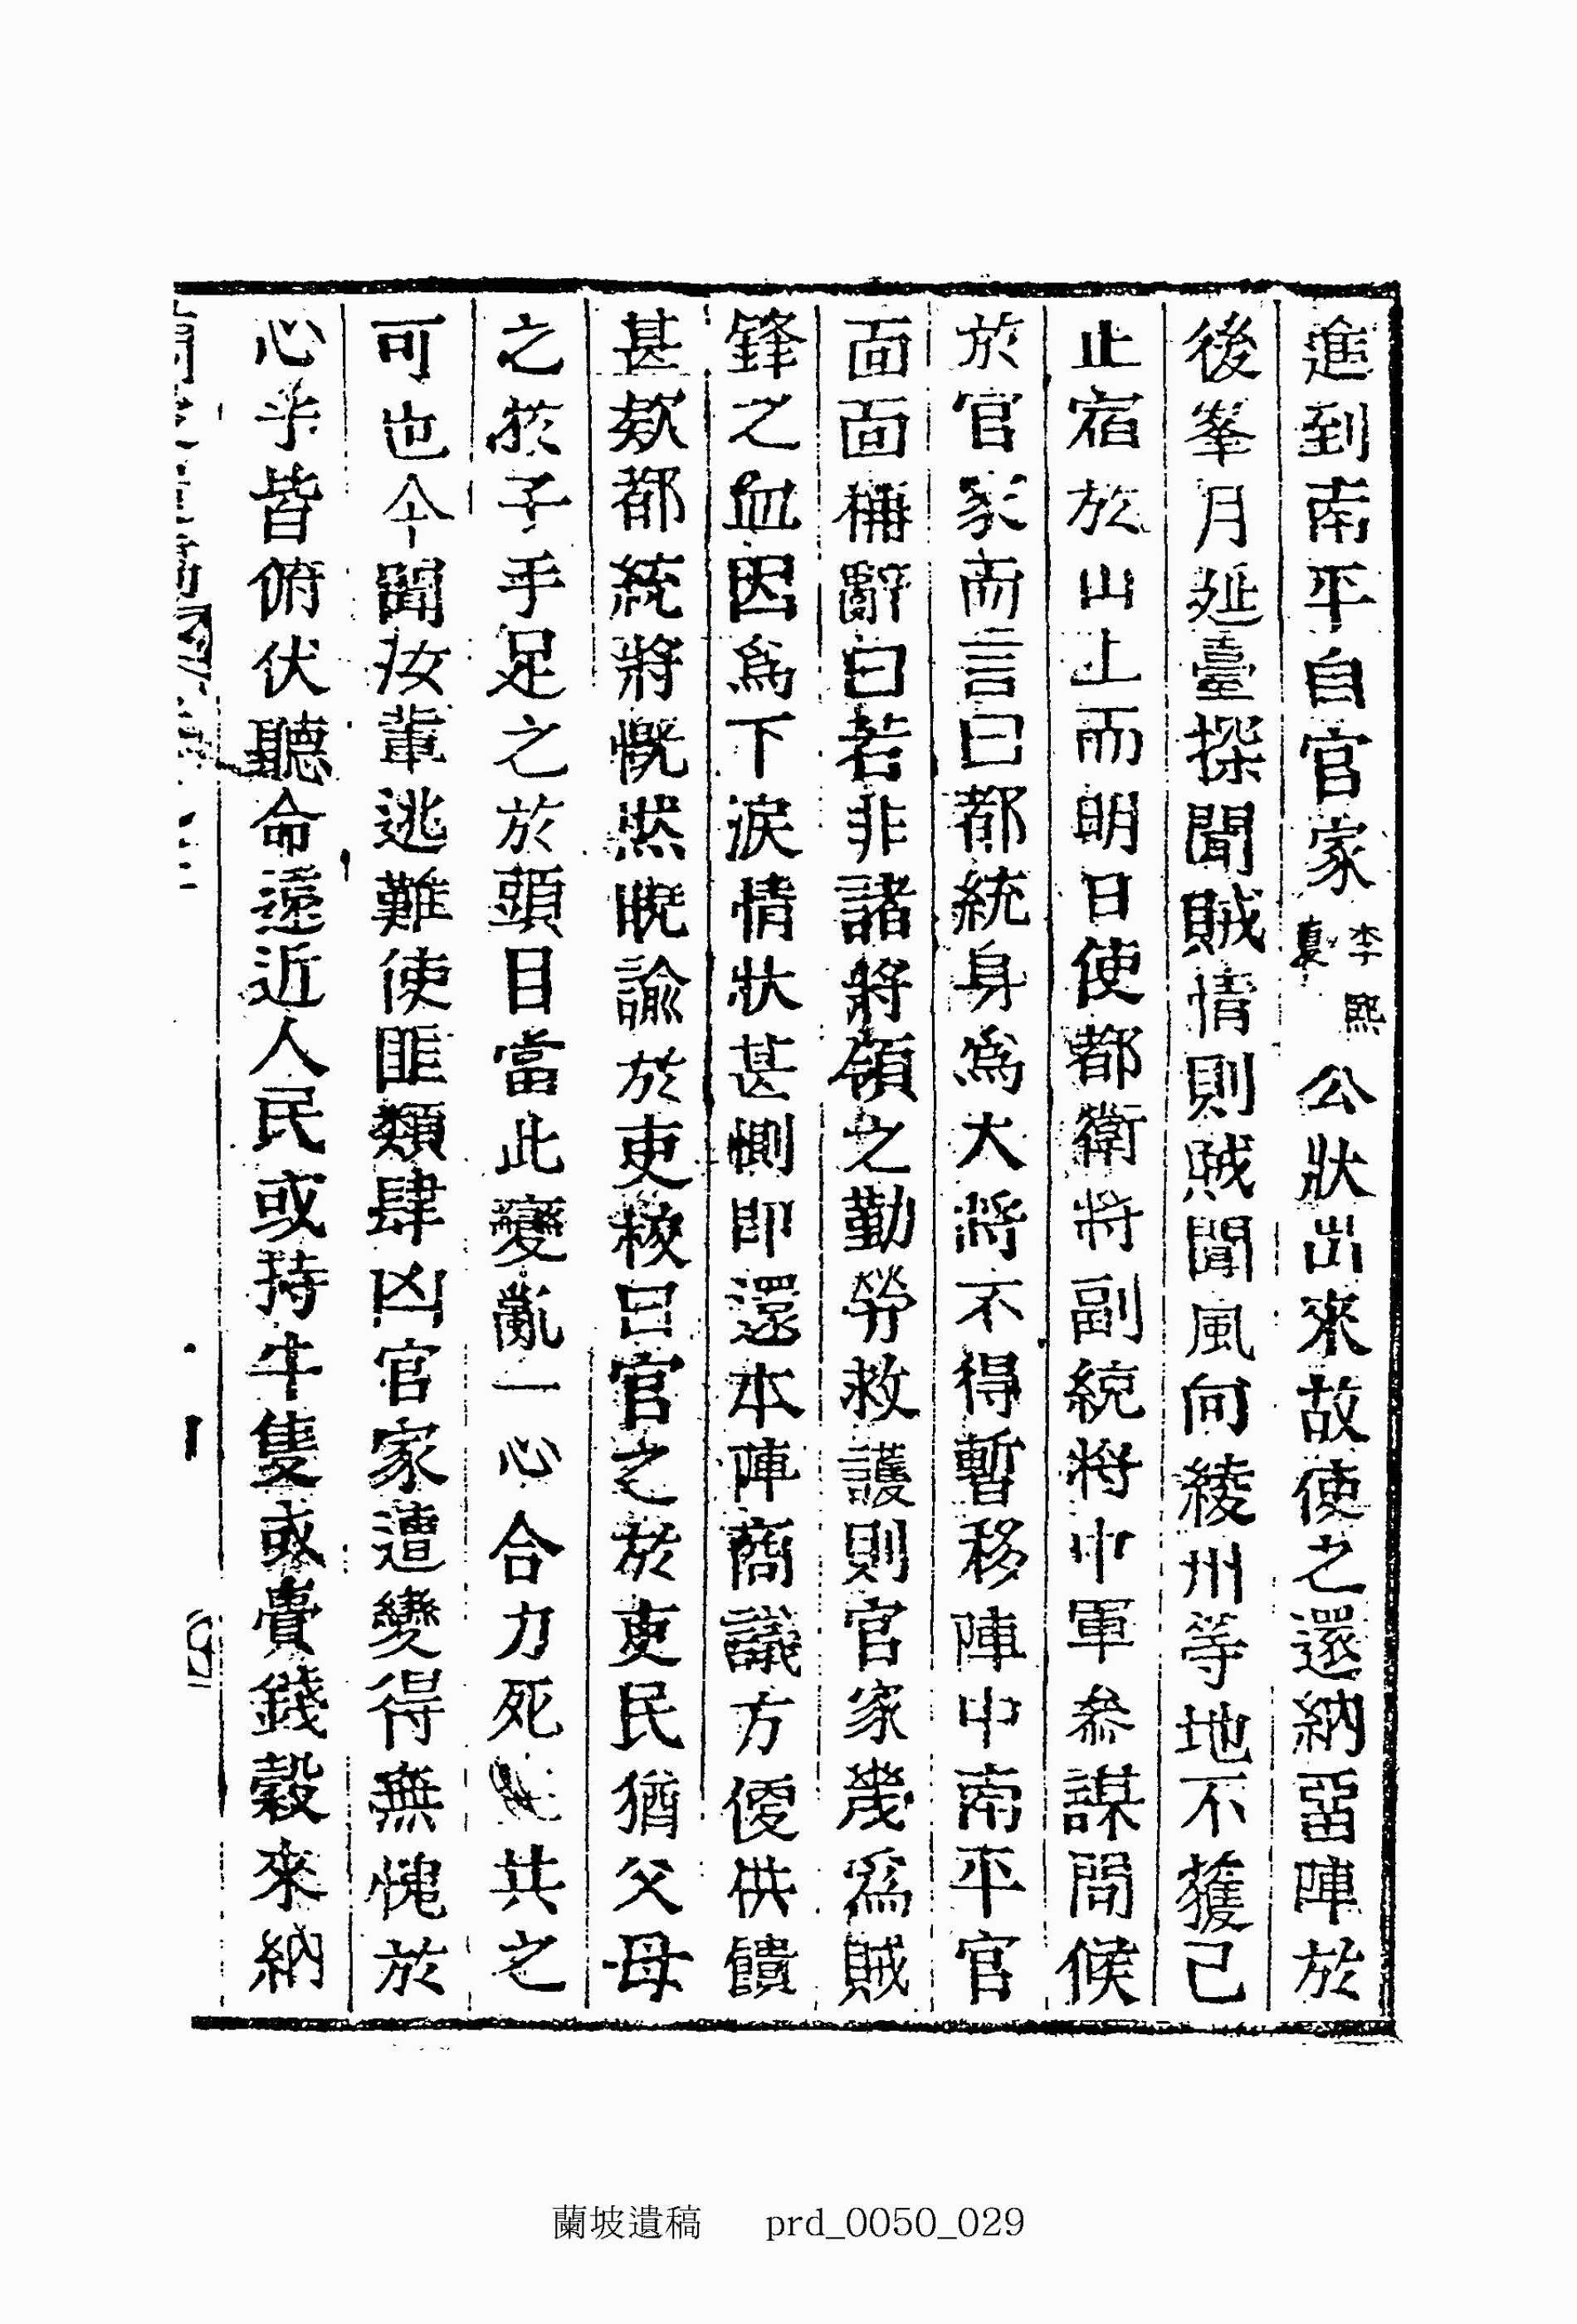 進到南平自官家李熙夏公狀出來故使之還納畱陣於
後峯月延臺探聞賊情則賊聞風向綾州等地不獲已
止宿於山上而明日使都衛將副統將中軍叅謀問候
於官家而言曰都統身爲大將不得暫移陣中南平官
面面稱辭曰若非諸將領之勤勞救護則官家幾爲賊
鋒之血因爲下淚情狀甚惻卽還本陣商議方優供饋
甚欵都統將慨然曉諭於吏校曰官之於吏民猶父母
之於子手足之於頭目當此變亂一心合力死共之
可也今聞汝輩逃難使匪類肆凶官家遭變得無愧於
心乎皆俯伏聽命遠近人民或持牛隻或賣錢穀來納
蘭坡遺稿 prd_0050_029